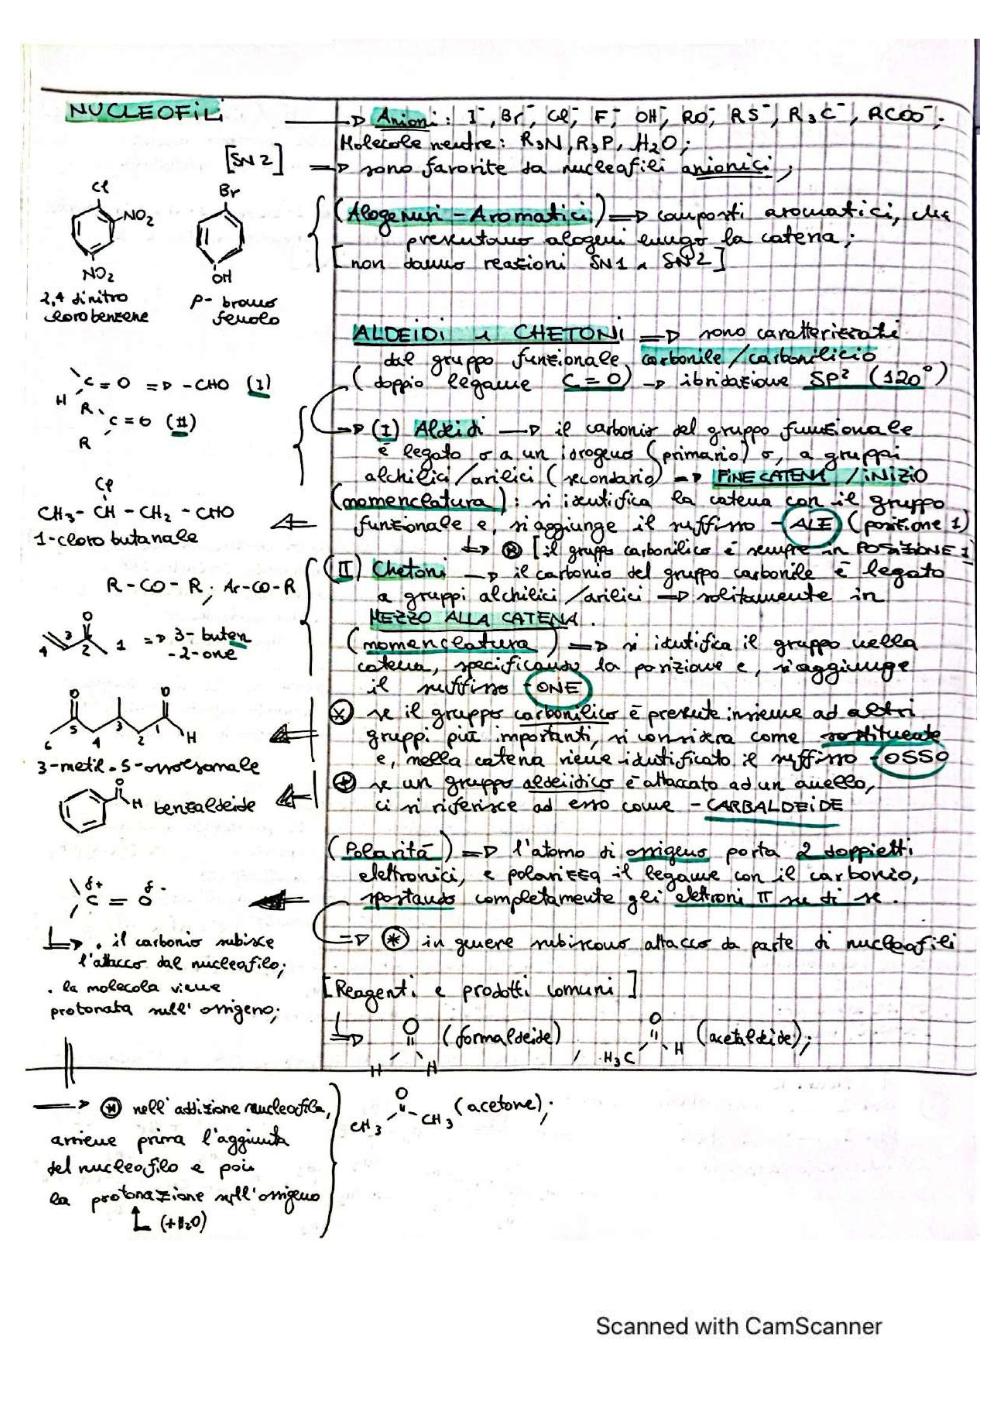 NUCLEOFILI
→ Anioni: I⁻, Br⁻, Cl⁻, F⁻, OH⁻, RO⁻, RS⁻, R₃C⁻, RCOO⁻;
Molecole neutre: R₃N, R₃P, H₂O;
[SN2] => sono favorite da nucleofili anionici;
Cl
NO₂
NO₂
2,4 dinitro
clorobenzene
Br
OH
p- bromo
fenolo
(Alogenuri - Aromatici) => composti aromatici, che
presentano alogeni lungo la catena;
[non danno reazioni SN1 e SN2]
ALDEIDI e CHETONI => sono caratterizzati
dal gruppo funzionale carbonile/carbonilicio
(doppio legame C=O) → ibridazione SP² (120°)
C=O => -CHO (I)
H
R
C=O (II)
R
→ (I) Aldeidi → il carbonio del gruppo funzionale
è legato o a un idrogeno (primario) o, a gruppi
alchilici/arilici (secondario) => FINE CATENA/INIZIO
(nomenclatura): si identifica la catena con il gruppo
funzionale e, si aggiunge il suffisso -ALE (posizione 1)
↳ ⊗ [il gruppo carbonilico è sempre in POSIZIONE 1
Cl
CH₃- CH - CH₂ - CHO
1-cloro butanale
(II) Chetoni → il carbonio del gruppo carbonile è legato
a gruppi alchilici/arilici → solitamente in
MEZZO ALLA CATENA.
R-CO-R; Ar-CO-R
(nomenclatura) => si identifica il gruppo nella
catena, specificando la posizione e, si aggiunge
il suffisso -ONE
O
4 3 2 1 => 3-buten
-2-one
⊗ se il gruppo carbonilico è presente insieme ad altri
gruppi più importanti, si considera come sostituente
e, nella catena viene identificato il suffisso -OSSO
O O
6 5 4 3 2 1 H
3-metil-5-ossoesanale
⊕ se un gruppo aldeidico è attaccato ad un anello,
ci si riferisce ad esso come -CARBALDEIDE
O
H benzaldeide
(Polarità) => l'atomo di ossigeno porta 2 doppietti
elettronici, e polarizza il legame con il carbonio,
spostando completamente gli elettroni π su di se.
δ+ δ-
C = O
=> ⊛ in genere subiscono attacco da parte di nucleofili
↳ . il carbonio subisce
l'attacco dal nucleofilo;
. la molecola viene
protonata sull' ossigeno;
[Reagenti e prodotti comuni]
↳ O
H H
(formaldeide),
O
H₃C H
(acetaldeide);
O
CH₃ CH₃ (acetone);
=> ⊛ nell'addizione nucleofila,
avviene prima l'aggiunta
del nucleofilo e poi
la protonazione sull'ossigeno
(+H₂O)
Scanned with CamScanner